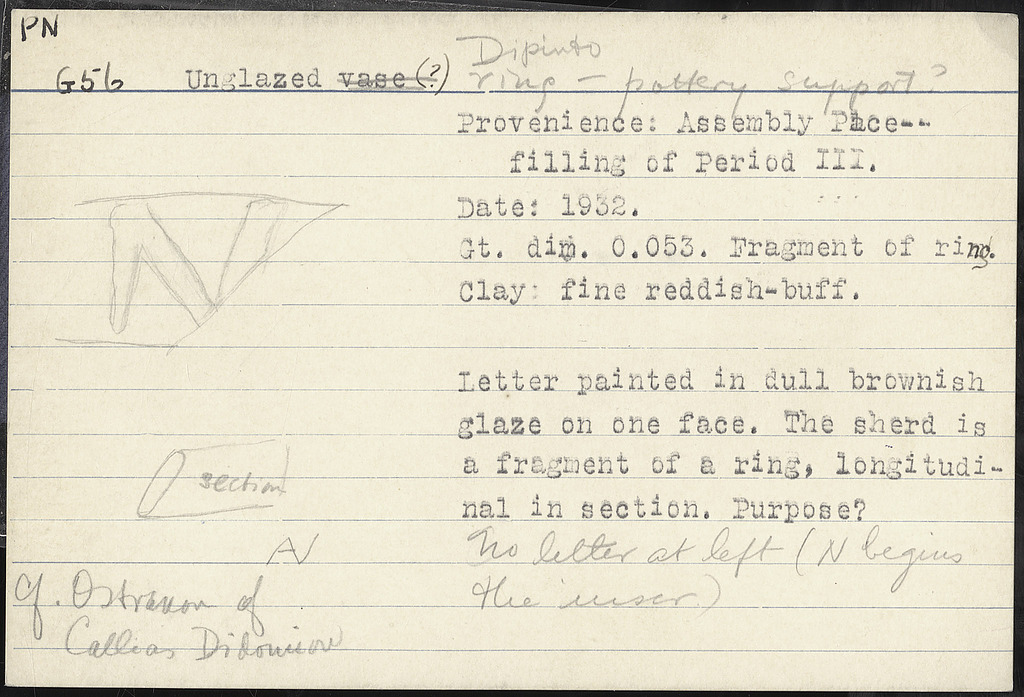 PN
Dipinto
G56 Unglazed vase (?) ring – pottery support?
Provenience: Assembly Place--
filling of Period III.
Date: 1932.
Gt. dim. 0.053. Fragment of ring.
Clay: fine reddish-buff.
N
Letter painted in dull brownish
glaze on one face. The sherd is
a fragment of a ring, longitudi-
nal in section. Purpose?
section
No letter at left (N begins
the inscr)
N
cf. Ostrakon of
Callias Didymiou